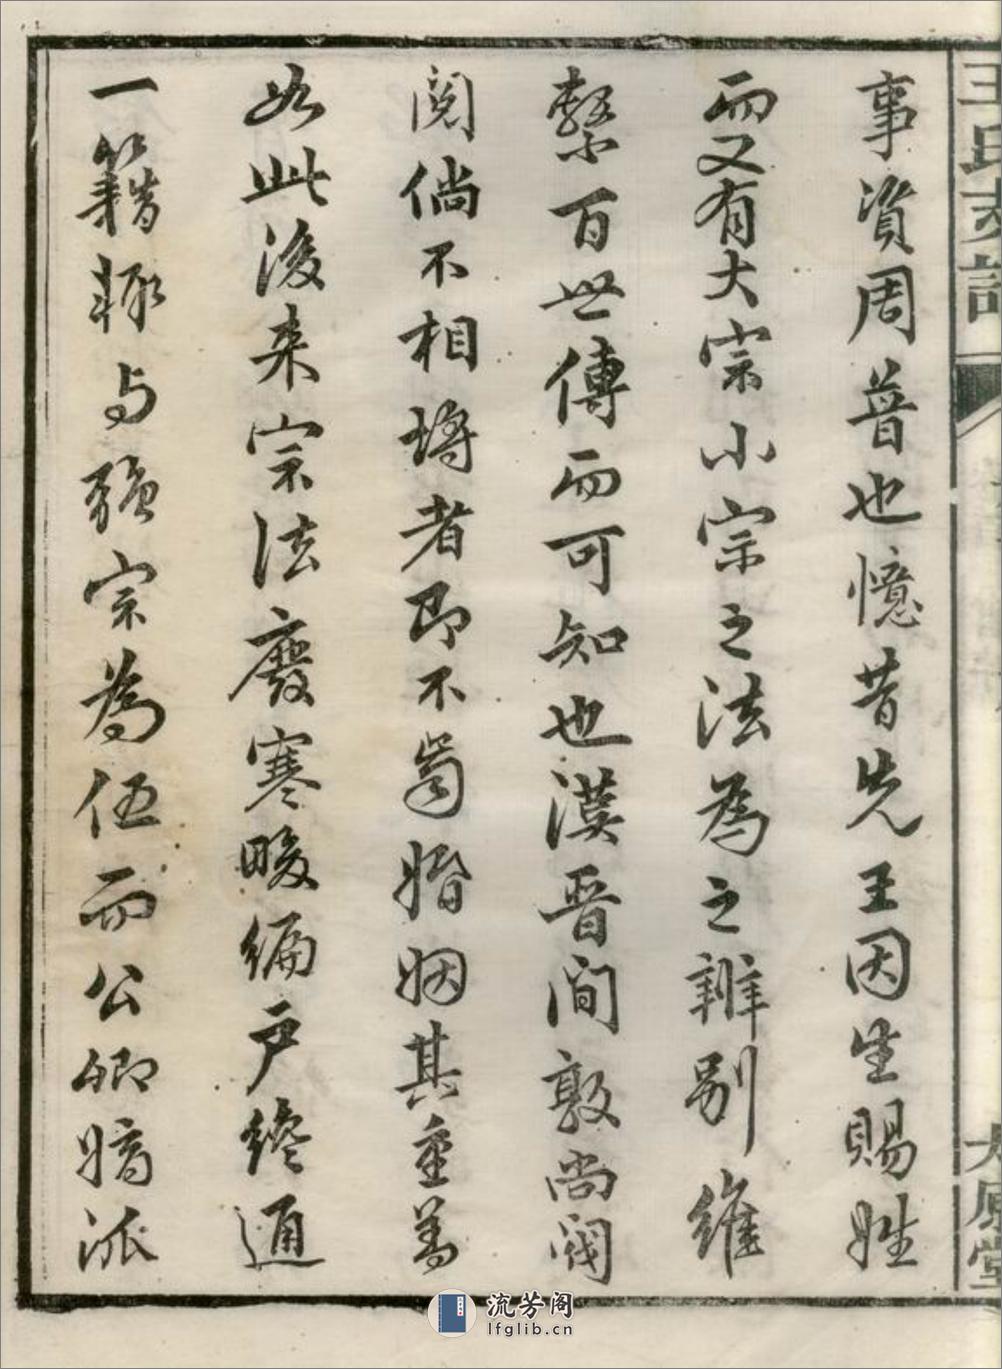 王氏支譜
太原堂
事資周普也憶昔先王因生賜姓
而又有大宗小宗之法為之辨別維
繫百世傳而可知也漢晉間敦尚閥
閱倘不相將者即不為婚姻其重蓋
如此後来宗法廢寒畯編戶終通
一籍輒与強宗為伍而公卿嫡派
流芳阁
lfglib.cn